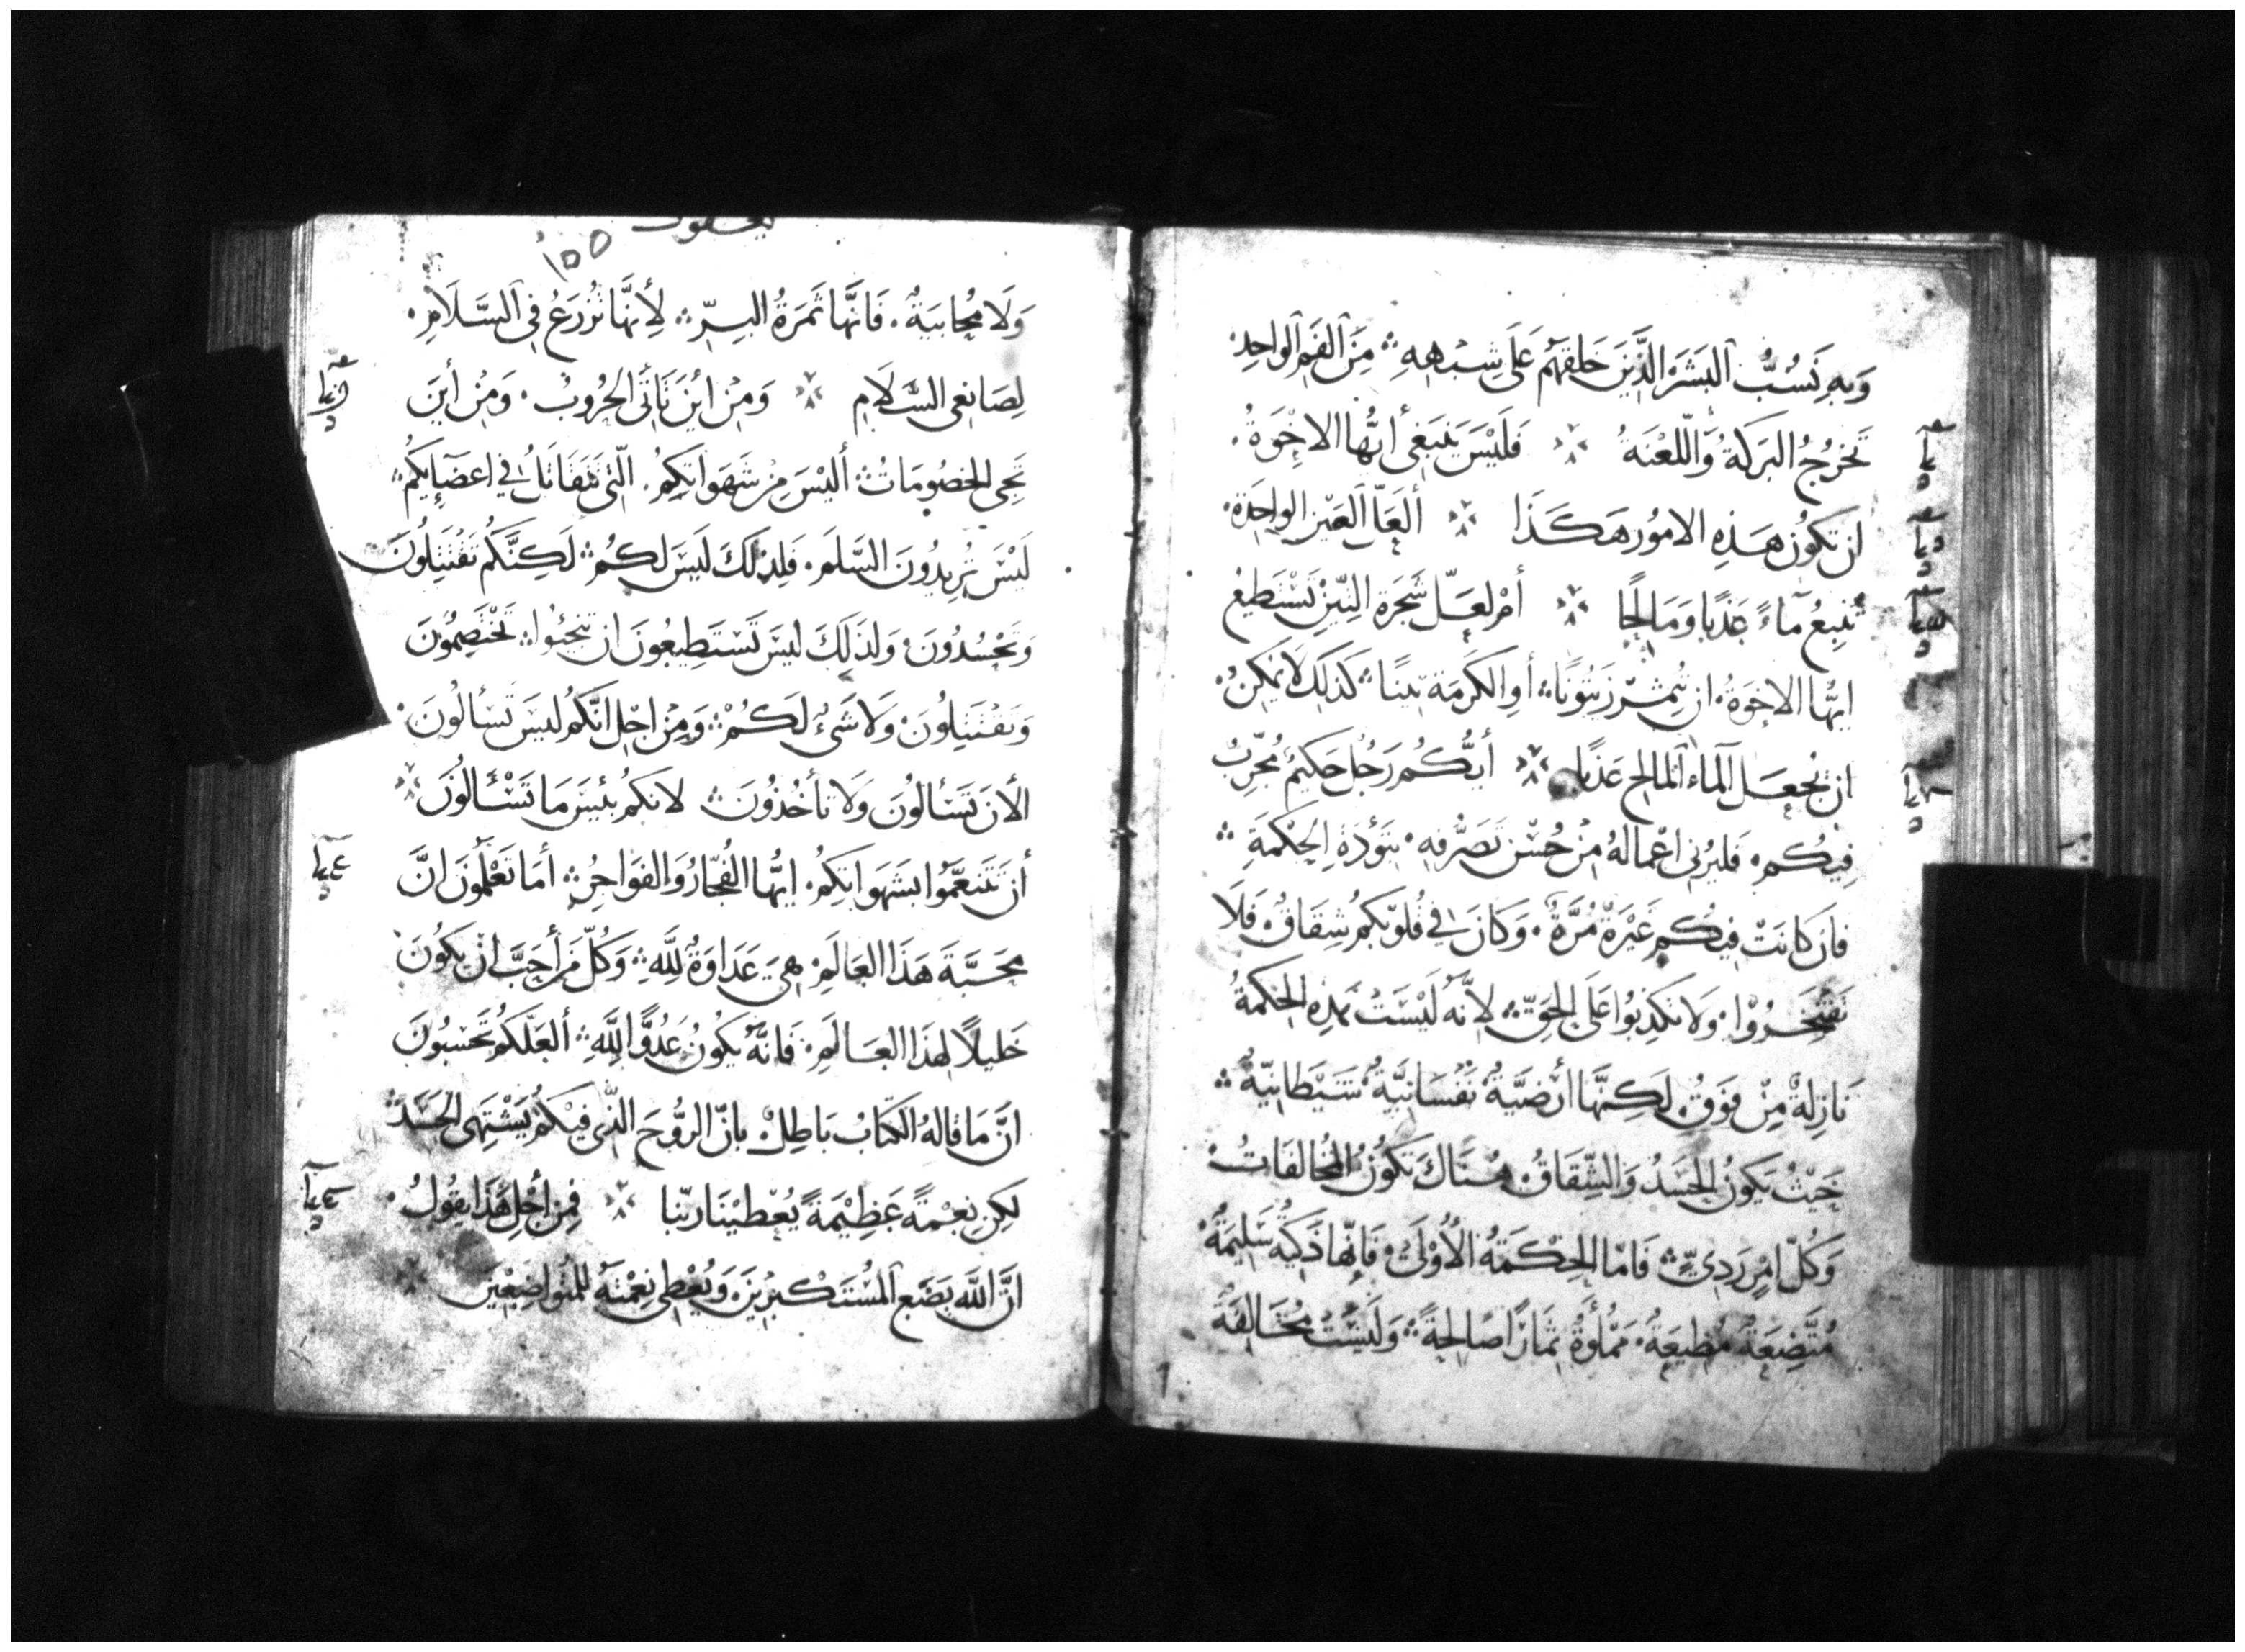 وَبِهِ نَسُبُّ اَلبَشَرَ الَّذِينَ خَلَقَهُم عَلَى شِبْهِهِ ؞ مِنَ الفَمِ الواحِدِ
تَخرُجُ البَرَكَةُ وَاللَّعْنَةُ ؞ فَلَيْسَ يَنبَغِي أيُّهَا الاِخْوَةُ ۰
ان تَكوُنَ هَذِهِ الامُور هَكَذَا ؞ ألعَلَّ العَيْن الواحِدَة ۰
تُنبِعُ مآءً عَذبًا وَمَالِحًا ؞ أمْ لَعَلّ شَجَرَة التِينِ تَسْتَطِيعُ
ايُّها الاخوَةُ ۰ ان تُثمِرَ زَيتوُنًا ؞ أوِ الكَرمَة تينًا ؞ كَذلِكَ لَا يمكِنُ ۰
ان نجعَل اَلمَاء اَلمالح عَذبًا ؞ أيُّكُم رَجُل حَكيمٌ مُجَرّبٌ
فِيكُم ۰ فَليُرِنِي اعْمالهُ مِنْ حُسْن تَصَرُّفِهِ ۰ بتَؤدَةِ الحِكْمَةِ ؞
فان كانَتْ فِيكُم غَيْرَة مُرَّة ۰ وَكَانَ فِي قُلُوبكُم شِقَاقٌ ۰ فَلَا
تَفتَخِرُوْا ۰ وَلَا تكذِبُوا عَلَى الحَقّ ؞ لأنّهُ لَيْسَتْ هَذِهِ الحِكمَةُ
نَازِلةً مِنْ فوَقُ ۰ لَكِنَّهَا أرْضيَّةٌ نَفْسَانِيَّةٌ شَيْطَانِيّةٌ ؞
حَيْثُ يَكونُ الحَسَدُ وَالشِّقَاقُ ۰ هُنَاكَ تَكوُنُ المُخَالَفَاتُ ۰
وَكُلّ امْرٍ رَدِيٍّ ؞ فَامّا الحِكْمَةُ الأُوْلَى ۰ فَإنّها ذَكِيّة سَلِيمَةٌ ۰
مُتَّضِعَةٌ مُطِيعَةٌ ۰ مَمْلُوَّةٌ ثِمَارًا صَالِحَةً ؞ وَلَيْسَتْ مُخَالِفَةً
١٥٥
وَلَا مُحابيَةٌ ۰ فَانَّهَا ثَمَرَةُ البِرّ ؞ لِأنَّهَا تُزرَعُ فِي اَلسَّلَامِ ۰
لِصَانِعي السَّلَامِ ؞ وَمِنْ أيْنَ تَأتَى الحُرُوبُ ۰ وَمِنْ أينَ
تَجِي الخصُومَاتُ ؞ أليْسَ مِنْ شَهَوَاتِكُمُ ۰ الّتي تَتَقَاتَلُ فِي اعضَآيِكُم ؞
لَيْسَ تُرِيدُونَ السَّلَم ۰ فَلِذلَكَ لَيَسَ لَكُم ؞ لَكِنَّكُم تَقْتَتِلُونَ
وَتَحْسُدُونَ ۰ وَلذَلِكَ ليسَ تَسْتَطِيعُونَ ان تنجَحُوا ؞ تَخْتَصِمُونَ
وَتَقْتَتِلُونَ ۰ وَلا شَىءَ لَكُمْ ؞ وَمِنْ اجْل انَّكُم ليسَ تَسْألُونَ ۰
الأنَ تَسَئالُونَ وَلَا تَأخُذُونَ ؞ لانكم بئيسَ مَا تَسْئَالُونَ
أن تَتَنعَّمُوا بشَهَوَاتِكُم ۰ ايُّها الفُجّارُ وَالفوَاجِر ؞ أمَا تَعْلَمُونَ انَّ
مَحَبَّةَ هَذَا العَالَمِ ۰ هِيَ عَدَاوَةٌ لِلَّهِ ؞ وَكُلّ مَن أحَبَّ ان يَكُونَ
خَلِيلًا لِهذَا العَالَمِ ۰ فَانَّهُ يَكُونُ عَدُوًّا لِلَّهِ ؞ ألعَلّكُم تَحْسبُونَ
انَّ مَا قالهُ الكتابُ بَاطِلٌ ۰ بانّ الرُّوحَ الّذي فِيْكمْ يَشْتَهِي الحَسَدَ
لَكِن نِعْمَةً عَظِيْمَةً يُعْطيْنَا ربّنا ؞ فِمن أجْلِ هَذَا يَقُولُ ۰
انَّ اللَّه يَضَع اَلمُسْتَكبرِينَ وَيُعْطِي نِعْمَتَهُ للمُتواضِعِينَ